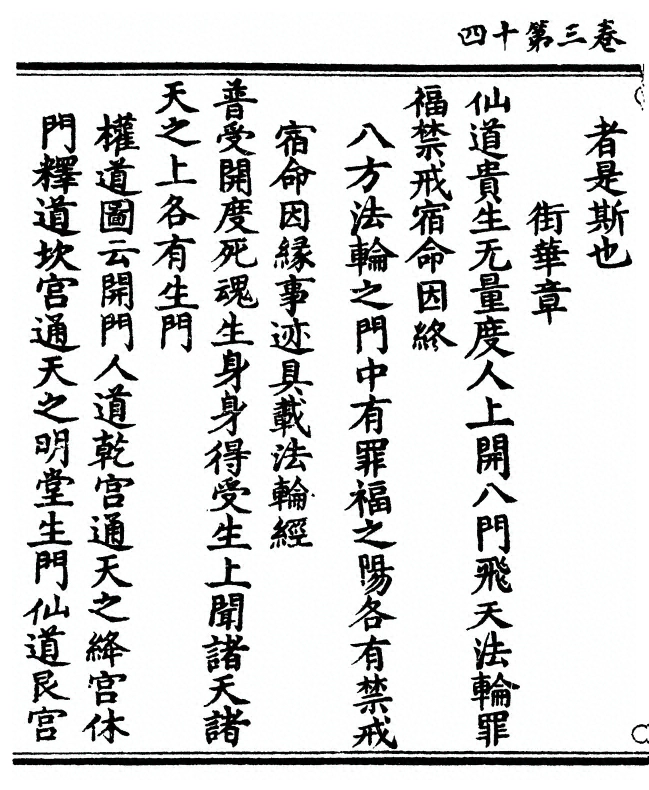 四十第三卷
者是斯也
街華章
仙道貴生无量度人上開八門飛天法輪罪
福禁戒宿命因終
八方法輪之門中有罪福之陽各有禁戒
宿命因緣事迹具載法輪經
普受開度死魂生身身得受生上聞諸天諸
天之上各有生門
權道圖云開門人道乾宮通天之絳宮休
門釋道坎宮通天之明堂生門仙道艮宮